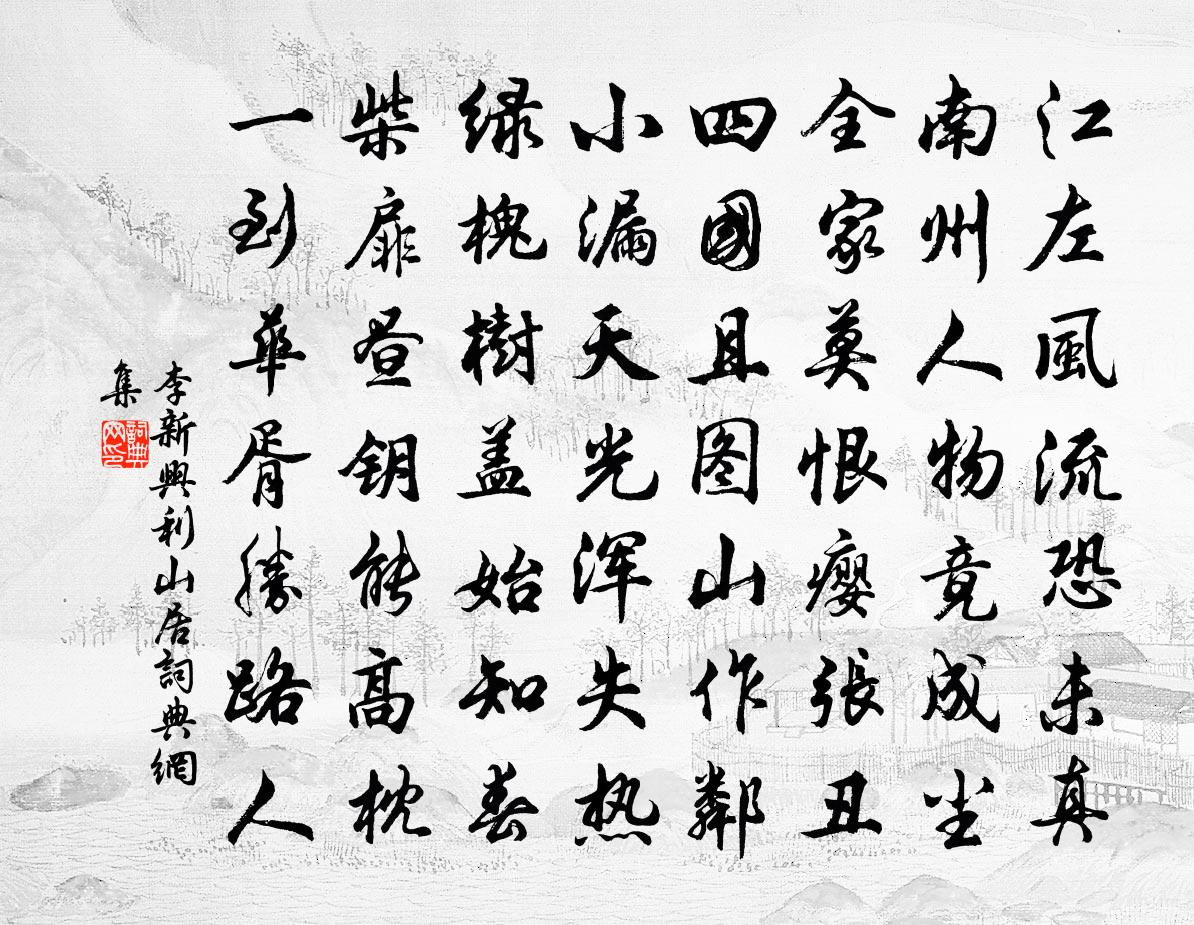 江左風流恐未真
南州人物竟成尘
全家莫恨瘿張丑
四國且图山作鄰
小漏天光浑失热
绿槐樹盖始知春
柴扉昼钥能高枕
一到華胥勝路人
李新興利山居詞典網
集
詞典網印